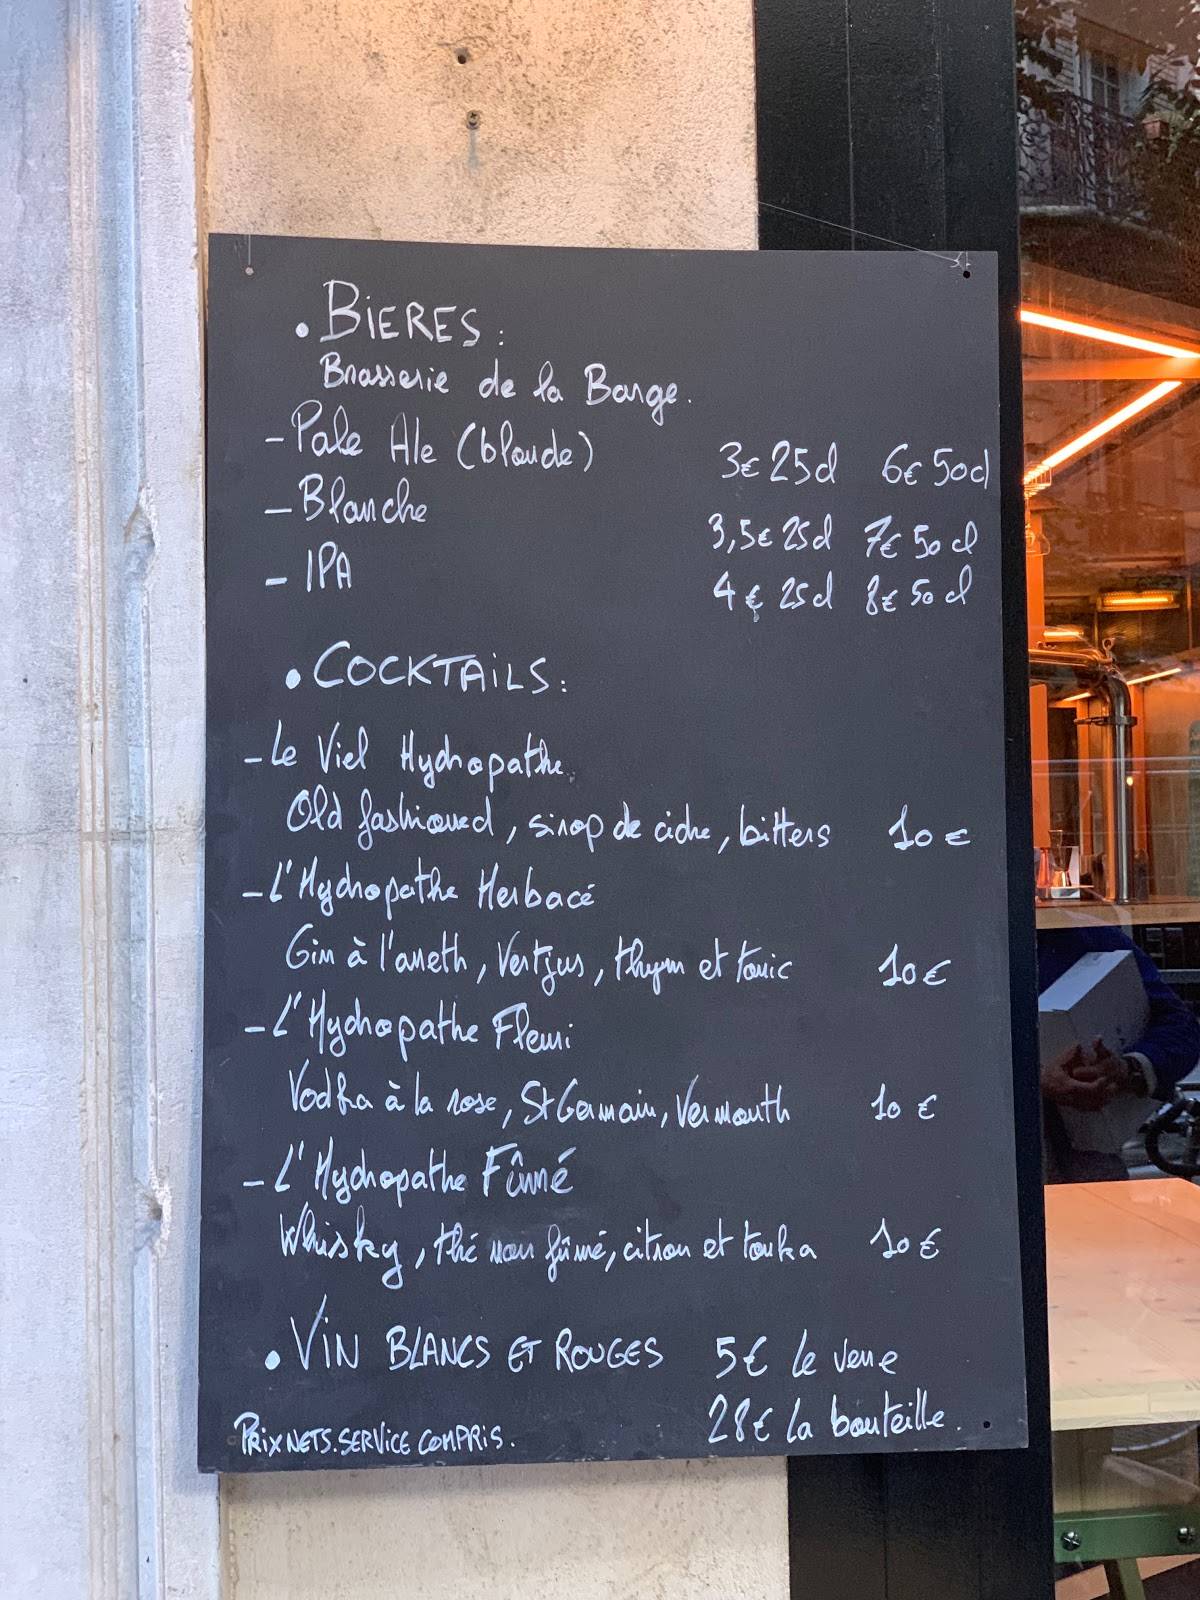 • BIERES :
Brasserie de la Barge.
- Pale Ale (blonde) 3€ 25cl 6€ 50cl
- Blanche 3,5€ 25cl 7€ 50cl
- IPA 4€ 25cl 8€ 50cl
• COCKTAILS :
- Le Viel Hydropathe
Old fashioned, sirop de cidre, bitters 10€
- L'Hydropathe Herbacé
Gin à l'aneth, Vertjus, thym et tonic 10€
- L'Hydropathe Fleuri
Vodka à la rose, St Germain, Vermouth 10€
- L'Hydropathe Fûmé
Whisky, thé noir fûmé, citron et tonka 10€
• VIN BLANCS ET ROUGES 5€ le verre
28€ la bouteille.
PRIX NETS. SERVICE COMPRIS.